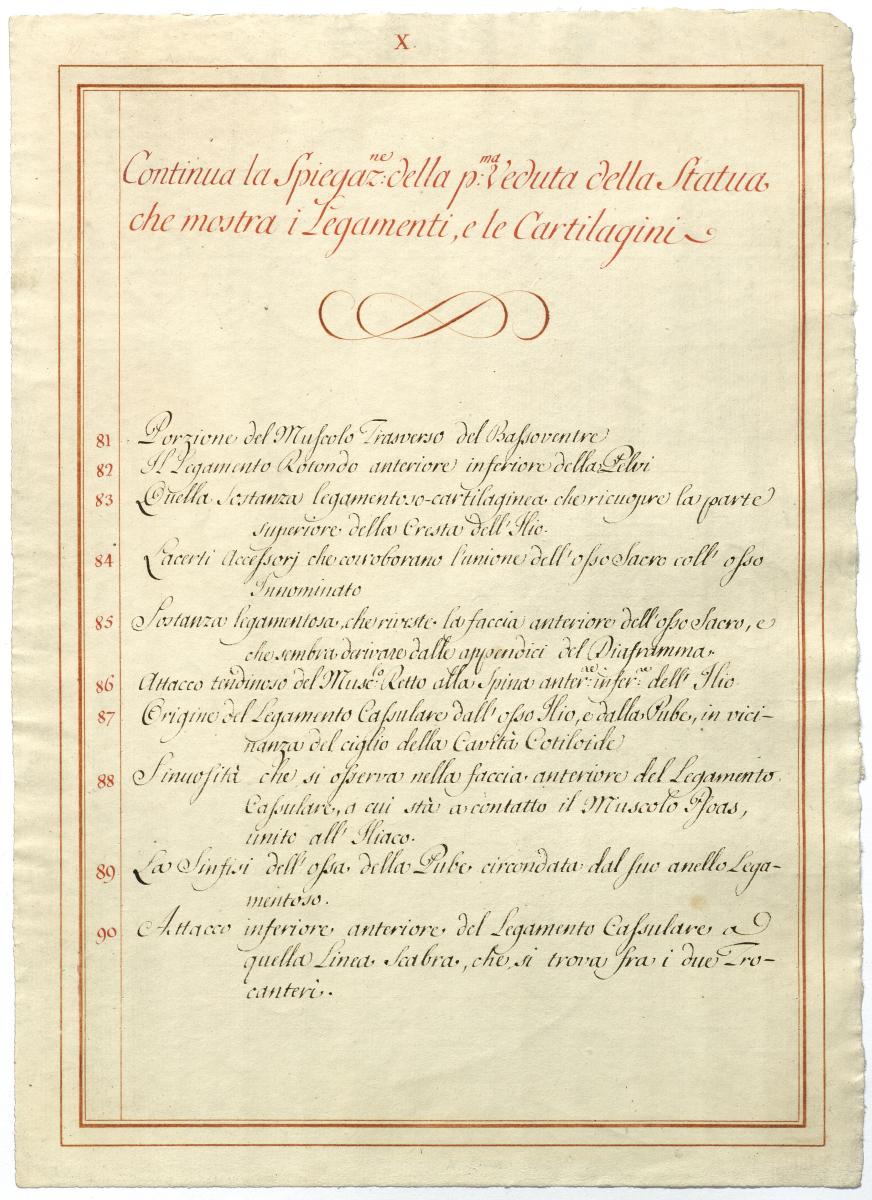 X.
Continua la Spiegaz:ne della p:ma Veduta della Statua,
che mostra i Legamenti, e le Cartilagini
81 Porzione del Muscolo Trasverso del Bassoventre
82 Il Legamento Rotondo anteriore inferiore della Pelvi
83 Quella Sostanza legamentoso-cartilaginea che ricuopre la parte
superiore della Cresta dell' Ilio.
84 Lacerti Accessorj che corroborano l'unione dell' osso Sacro coll' osso
Innominato
85 Sostanza legamentosa, che riveste la faccia anteriore dell' osso Sacro, e
che sembra derivare dalle appendici del Diaframma.
86 Attacco tendinoso del Musc:lo Retto alla Spina anter:re infer:re dell' Ilio
87 Origine del Legamento Cassulare dall' osso Ilio, e dalla Pube, in vici-
nanza del ciglio della Cavità Cotiloide
88 Sinuosità che si osserva nella faccia anteriore del Legamento
Cassulare, a cui stà a contatto il Muscolo Psoas,
unito all' Iliaco.
89 La Sinfisi dell' ossa della Pube circondata dal suo anello Lega-
mentoso.
90 Attacco inferiore anteriore del Legamento Cassulare a
quella Linea Scabra, che si trova fra i due Tro-
canteri.